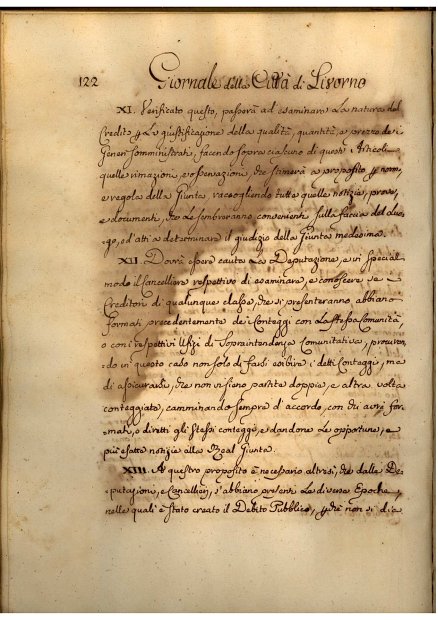 122 Giornale della Città di Livorno
XI. Verificato questo, passerà ad esaminare la natura del
Credito, e la giustificazione della qualità, quantità, e prezzo dei
Generi somministrati, facendo sopra ciascuno di questi Articoli
quelle e osservazioni, che stimerà a proposito norma,
e regola della Giunta, raccogliendo tutte quelle notizie, prove,
e documenti, che le sembreranno convenienti sulla faccia del luo-
go, ed atti a determinare il giudizio della Giunta medesima.
XII. Dovrà essere cauta la Deputazione, e in special
modo il Cancelliere respettivo di esaminare, e conoscere se i
Creditori di qualunque classe, che si presenteranno abbiano
formati precedentemente dei Conteggi con la stessa Comunità,
o con i respettivi Ufizi di Sopraintendenza Comunitativa, procuran-
do in questo caso non solo di farsi esibire i detti Conteggi, ma
di assicurarsi, che non vi sieno partite doppie, e altra volta
conteggiate, camminando sempre d'accordo, con chi avrà for-
mati, o diretti gli stessi conteggi, e dandone le opportune, e
più esatte notizie alla Real Giunta.
XIII. A questo proposito è necessario altresì, che dalle De-
putazioni, e Cancellieri, s'abbiano presenti le diverse Epoche,
nelle quali è stato creato il Debito Pubblico, che non si dia